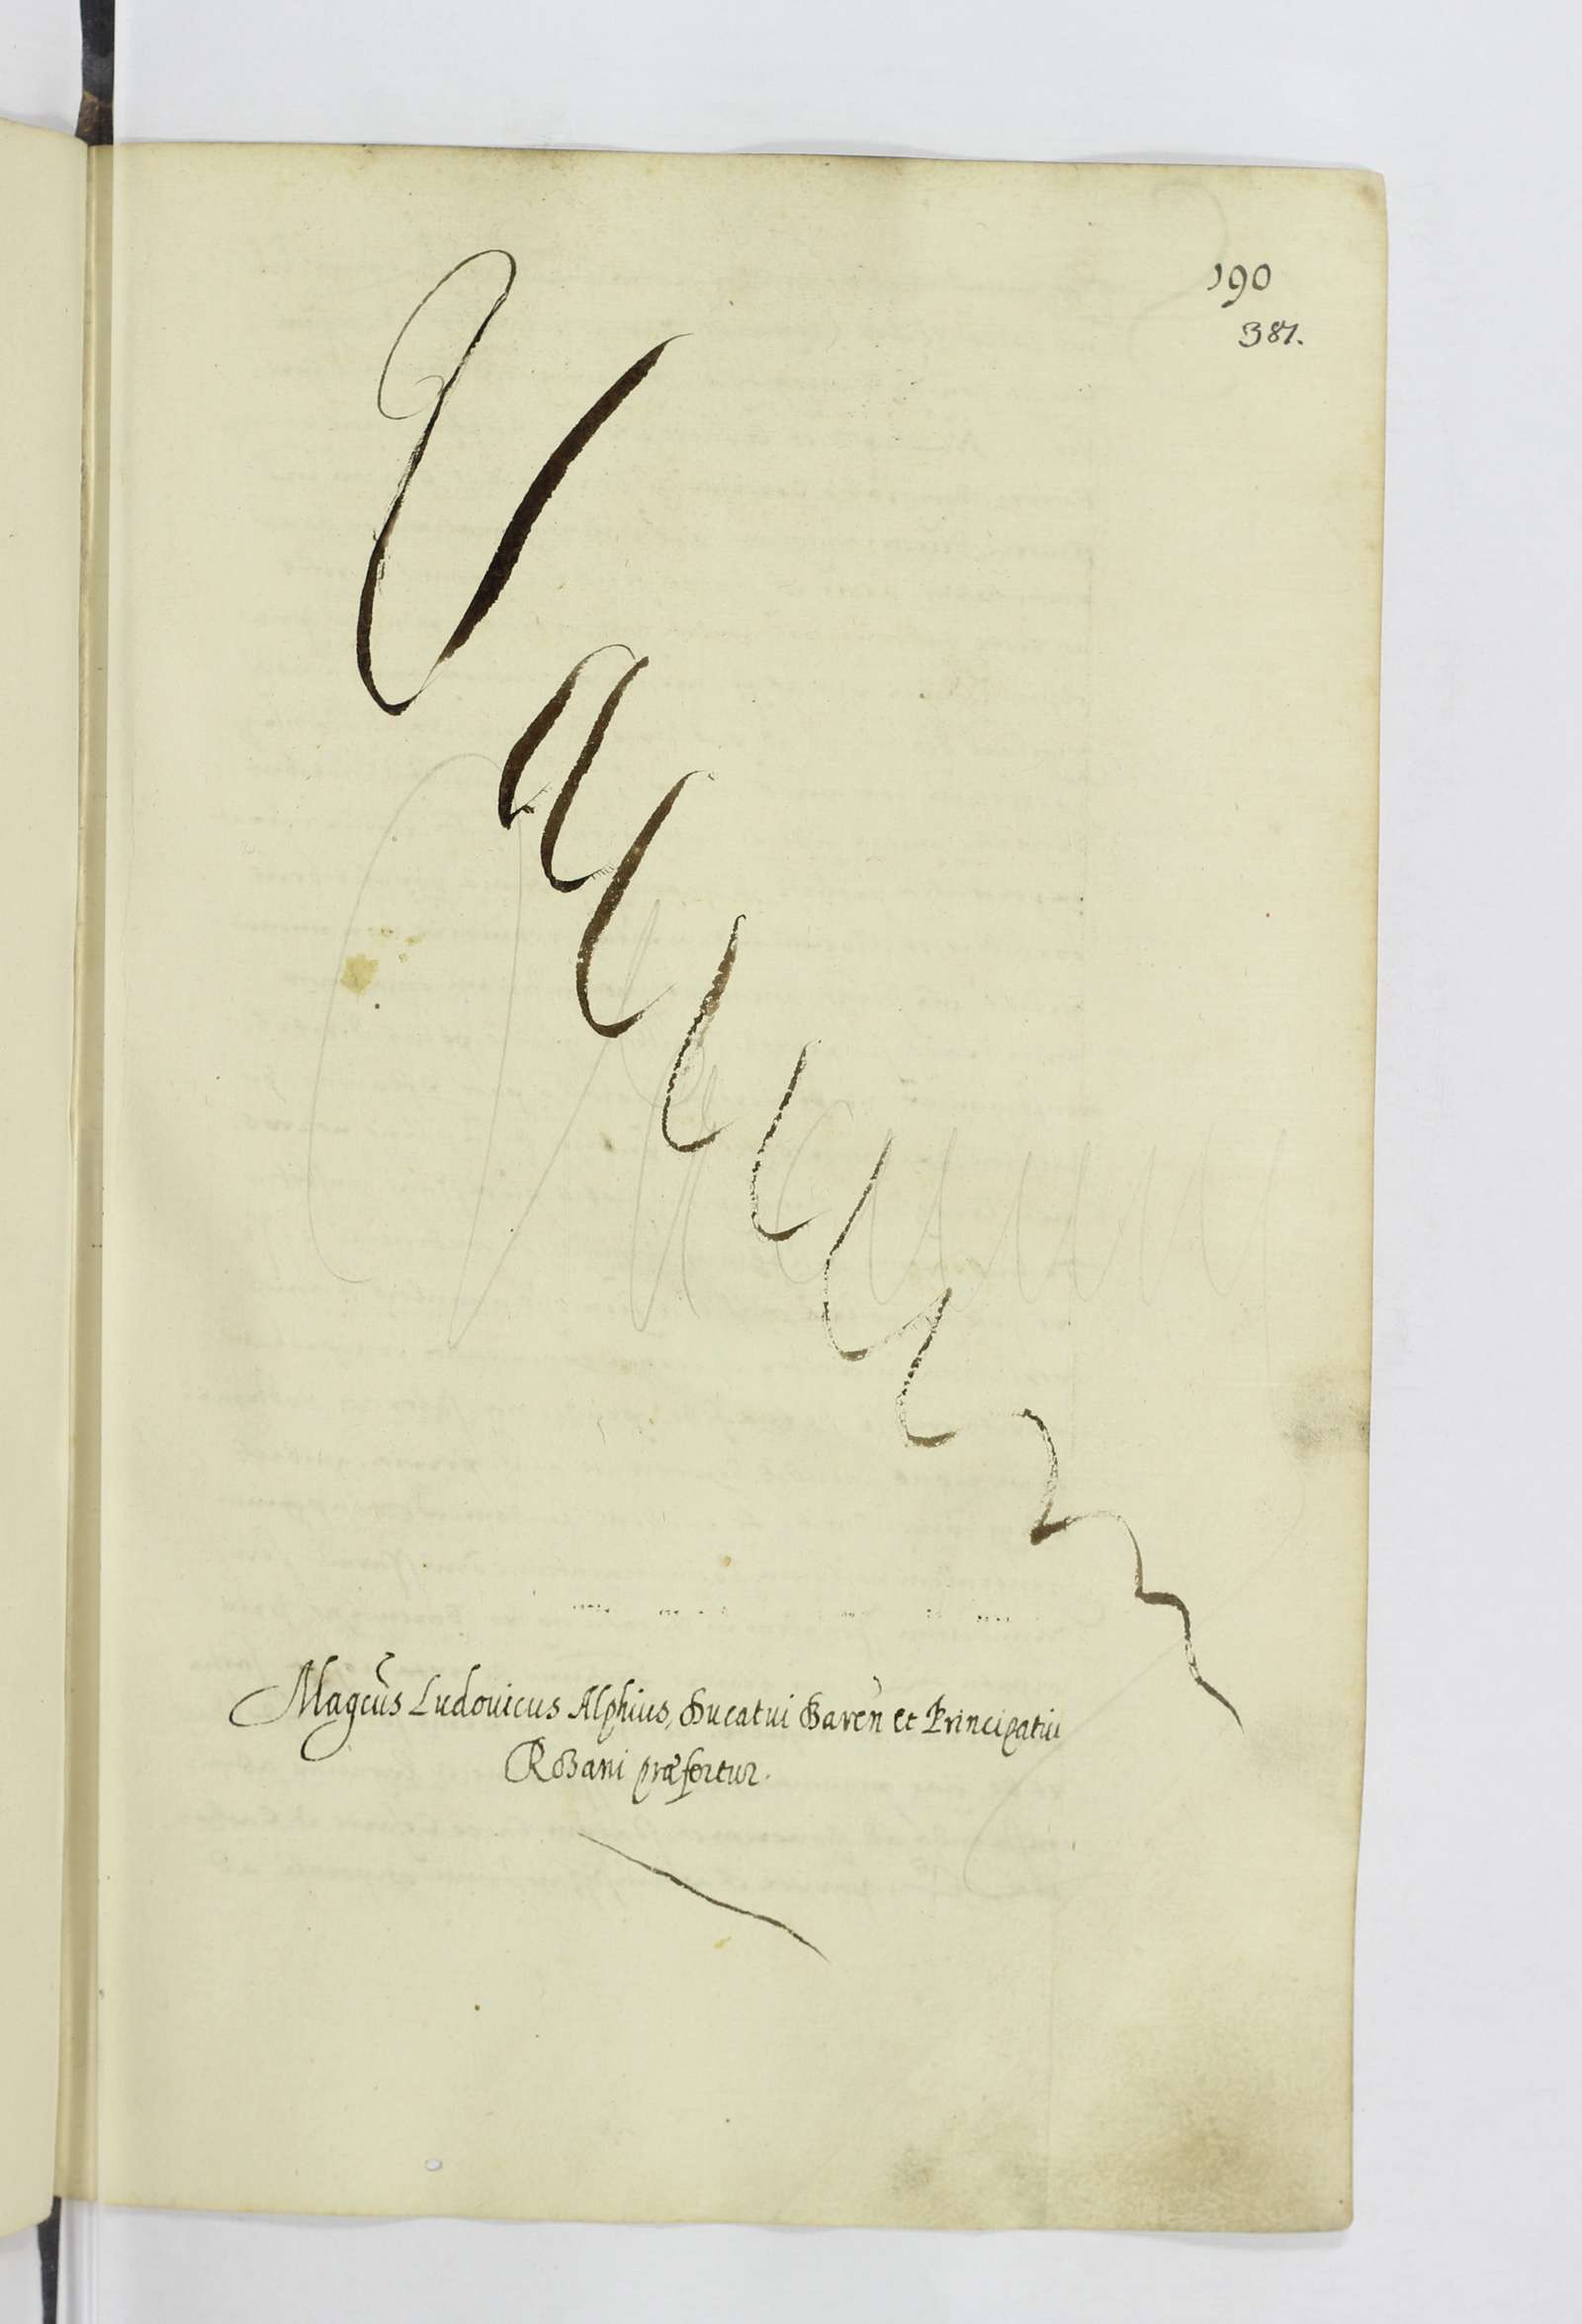 190
387.
Vacuum
Magcus Ludovicus Alphius, Ducatui Baren et Principatui
Robani præfertur.